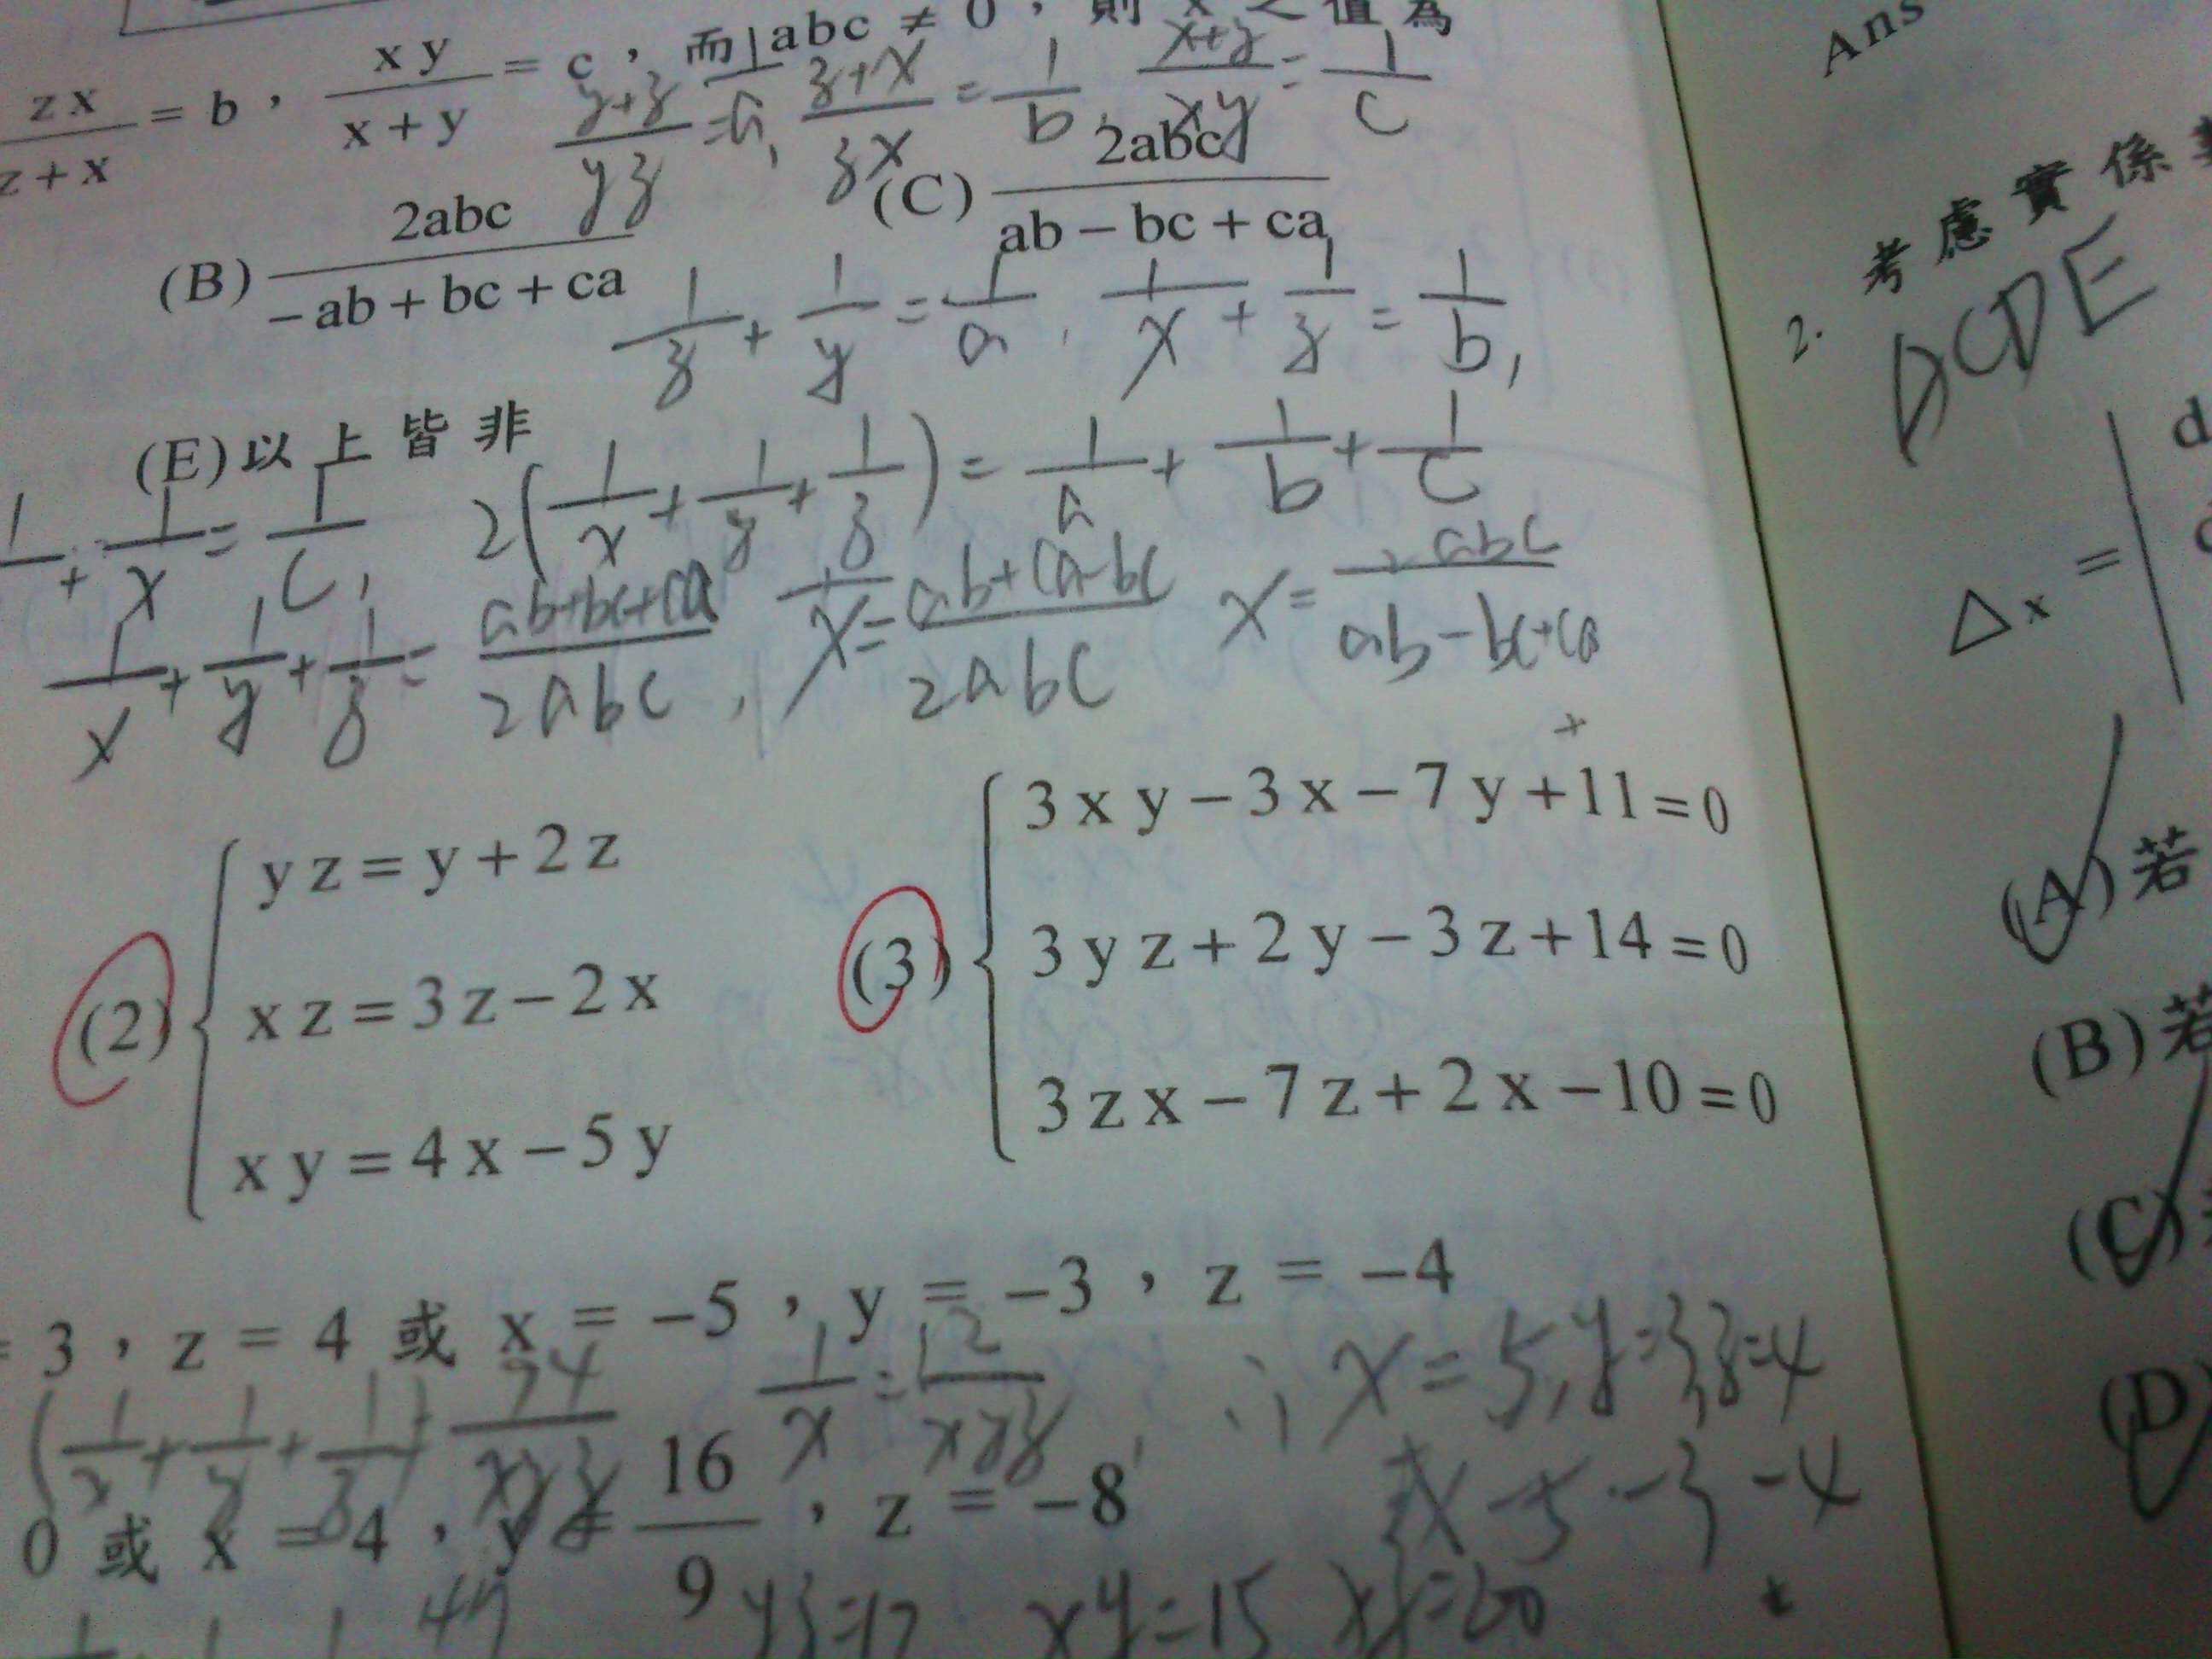 zx/z+x = b，xy/x+y = c，而 abc ≠ 0，則 x 之值為
y+z/yz = 1/a, z+x/zx = 1/b, x+y/xy = 1/c
(B) 2abc/-ab+bc+ca (C) 2abc/ab-bc+ca
1/z + 1/y = 1/a, 1/x + 1/z = 1/b,
(E)以上皆非
+ 1/x = 1/c, 2(1/x + 1/y + 1/z) = 1/a + 1/b + 1/c
1/x + 1/y + 1/z = ab+bc+ca/2abc, 1/x = ab+ca-bc/2abc x = 2abc/ab-bc+ca
(2) yz=y+2z
xz=3z-2x
xy=4x-5y
(3) 3xy-3x-7y+11=0
3yz+2y-3z+14=0
3zx-7z+2x-10=0
= 3，z = 4 或 x = -5，y = -3，z = -4
(1/x + 1/y + 1/z) 1/x = 12/xyz ∴ x=5, y=3, z=4
0 或 x = 4，y = 16/9，z = -8
x -5 -3 -4
47 xy=15
Ans
2. 考慮實係
ACDE
Δx =
d
c
(A)若
(B)若
(C)
(D)